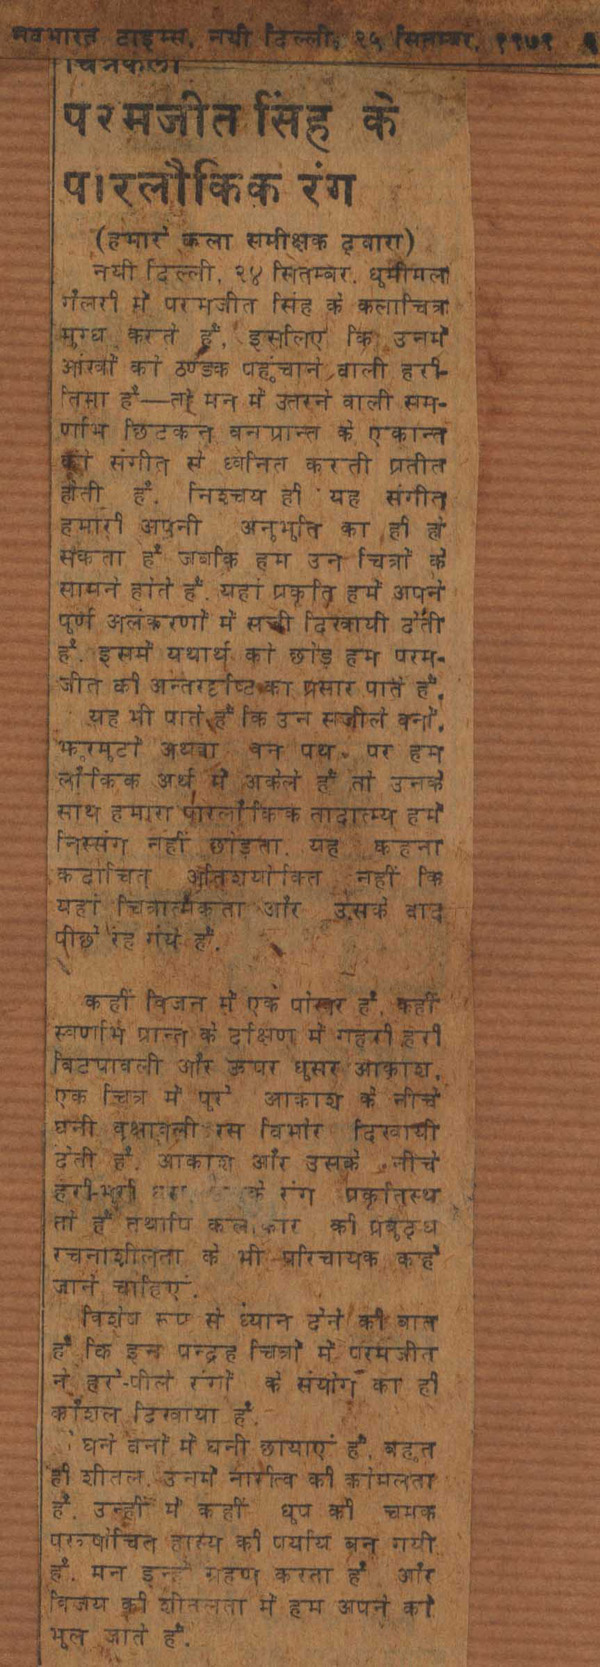 नवभारत टाइम्स, नयी दिल्ली, २५ सितम्बर, १९७१
चित्रकला
परमजीत सिंह के
पारलौकिक रंग
(हमारे कला समीक्षक द्वारा)
नयी दिल्ली, २४ सितम्बर. धूमीमल
गैलरी में परमजीत सिंह के कलाचित्र
मुग्ध करते हैं, इसलिए कि उनमें
आंखों को ठण्डक पहुंचाने वाली हरी-
तिमा है—तो मन में उतरने वाली सम-
र्णाभ छिटकन वनप्रान्त के एकान्त
को संगीत से ध्वनित करती प्रतीत
होती है. निश्चय ही यह संगीत
हमारी अपनी अनुभूति का ही हो
सकता है जबकि हम उन चित्रों के
सामने होते हैं. यहां प्रकृति हमें अपने
पूर्ण अलंकरणों में सजी दिखायी देती
है. इसमें यथार्थ को छोड़ हम परम-
जीत की अन्तरदृष्टि का प्रसार पाते हैं.
यह भी पाते हैं कि उन सजीले वनों,
झुरमुटों अथवा वन पथ पर हम
लौकिक अर्थ में अकेले हैं तो उनके
साथ हमारा पारलौकिक तादात्म्य हमें
निस्संग नहीं छोड़ता. यह कहना
कदाचित् अतिशयोक्ति नहीं कि
यहां चित्रात्मकता और उसके वाद
पीछे रह गये हैं.
कहीं विजन में एक पोखर है, कहीं
स्वर्णाभ प्रान्त के दक्षिण में गहरी हरी
विटपावली और ऊपर धूसर आकाश.
एक चित्र में पूरे आकाश के नीचे
घनी वृक्षावली रस विभोर दिखायी
देती है. आकाश और उसके नीचे
हरी-भरी धरा के रंग प्रकृतिस्थ
तो हैं तथापि कलाकार की प्रबुद्ध
रचनाशीलता के भी परिचायक कहे
जाने चाहिएं.
विशेष रूप से ध्यान देने की बात
है कि इन पन्द्रह चित्रों में परमजीत
ने हरे-पीले रंगों के संयोग का ही
कौशल दिखाया है.
घने वनों में घनी छायाएं हैं, बहुत
ही शीतल. उनमें नारीत्व की कोमलता
है. उन्हीं में कहीं धूप की चमक
पुरुषोचित हास्य की पर्याय बन गयी
है. मन इन्हें ग्रहण करता है और
विजय की शीतलता में हम अपने को
भूल जाते हैं.